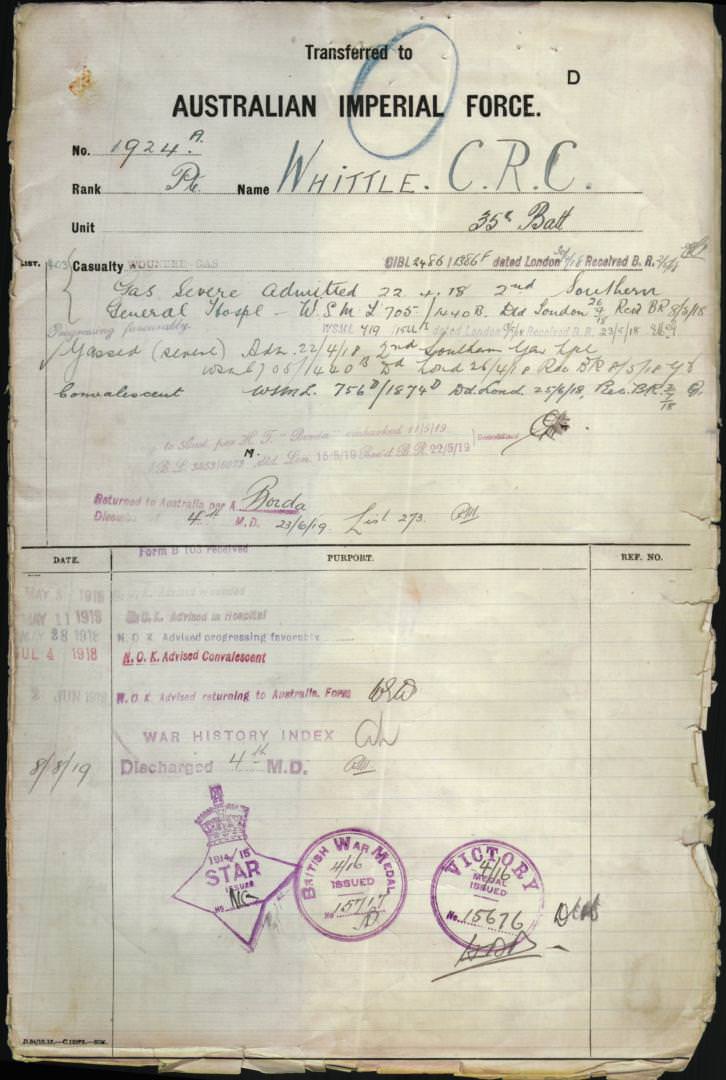 Transferred to
D
AUSTRALIAN IMPERIAL FORCE.
No. 1924 A.
Rank Pte. Name WHITTLE. C.R.C.
Unit 35th Batt
LIST. 403 Casualty WOUNDED GAS CIBL 2486/1386F dated London Received B.R.
Gas Severe Admitted 22.4.18 2nd Southern
General Hospl - W.S.M.L 705/1440B. Dtd London 26/4/18 Recd BR 8/5/18
Progressing favorably. WSML 719 dated London Received B.R. 23/5/18
Gassed (severe) Adm. 22/4/18 2nd Southern Gen Hpl
WSML 705/1440B Dd Lond 26/4/18 Rec BR 8/5/18
Convalescent WSML. 756D/1874D Dd. Lond. 25/6/18, Rec. BR. 2/7/18
to Aust. per H.T. "Borda" embarked 11/5/19.
B.L. Dtd Lon 15/5/19 Rec'd B.R. 22/5/19
Returned to Australia per Borda
4th M.D. 23/6/19. List 273.
Form B 103 received
DATE. PURPORT. REF. NO.
MAY 1918 Advised wounded
MAY 11 1918 N.O.K. Advised in Hospital
MAY 28 1918 N.O.K. Advised progressing favorably
JUL 4 1918 N.O.K. Advised Convalescent
JUN N.O.K. Advised returning to Australia.
WAR HISTORY INDEX
8/8/19 Discharged 4th M.D.
1914/15 STAR ISSUED No
BRITISH WAR MEDAL 4/16 ISSUED No 15717
VICTORY 4/16 MEDAL ISSUED No. 15676